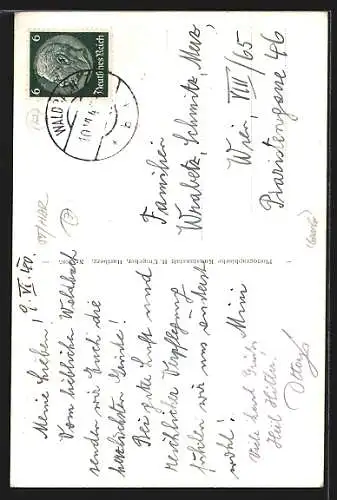 6 6
Deutsches Reich
WALD
Familien
Wrabetz, Schmitz, Merz,
Wien, VIII/65
Piaristengasse 46
Photographische Kunstanstalt H. Ungeheu, Hartberg,
9. VI. 40.
Meine Lieben!
Vom lieblichen Waldbach
senden wir Euch die
herzlichsten Grüße!
Bei guter Luft und
reichlicher Verpflegung
fühlen wir uns äußerst
wohl! Mimi
Viele Grüße
Heil Hitler!